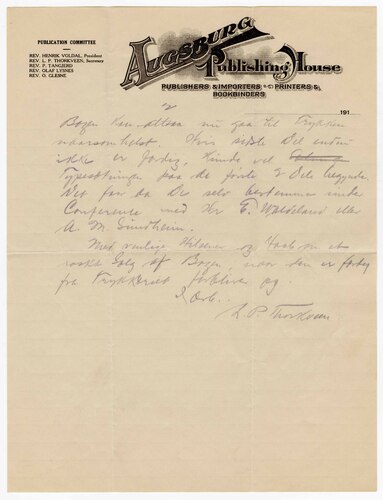 PUBLICATION COMMITTEE
REV. HENRIK VOLDAL, President
REV. L. P. THORKVEEN, Secretary
REV. P. TANGJERD
REV. OLAF LYSNES
REV. O. GLESNE
AUGSBURG
Publishing House
PUBLISHERS & IMPORTERS PRINTERS &
BOOKBINDERS
191
2
Bogen kan altsaa nu gaa til Trykken
naarsomhelst. Hvis sidste Del endnu
ikke er færdig, kunde vel
Typesætningen paa de første 2 Dele begynde.
Det faar da De selv bestemme under
Conferente med Hr. E. Waldeland eller
A. M. Sundheim.
Med venlig Hilsen og Haab om et
raskt Salg af Bogen, naar den er færdig
fra Trykkeriet forbliver jeg
L. P. Thorkveen